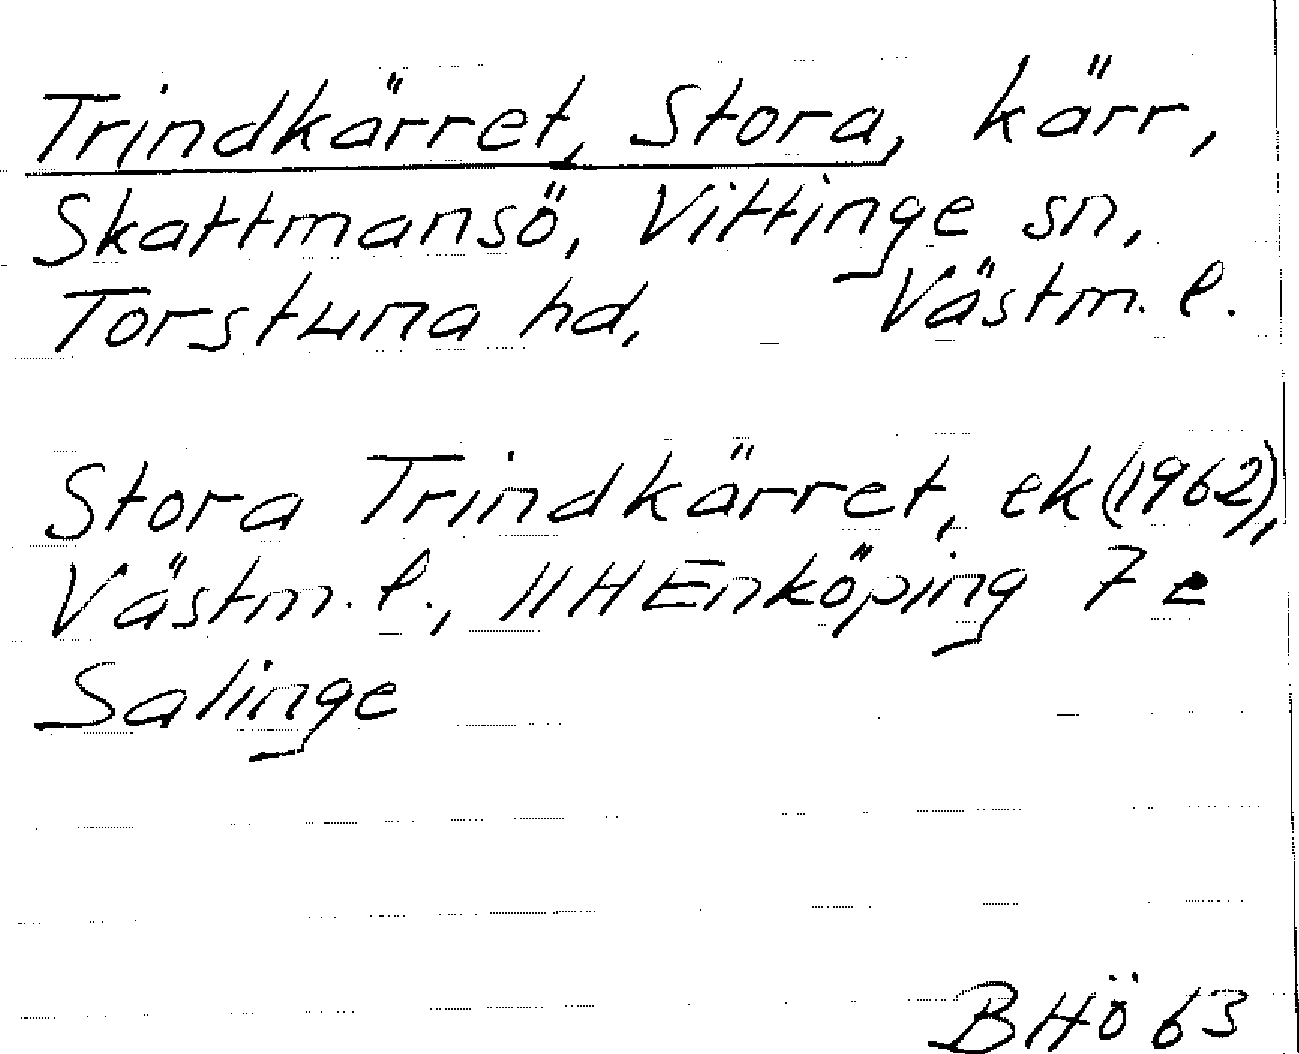 Trindkärret, Stora, kärr,
Skattmansö, Vittinge sn,
Torstuna hd, Västm. l.
Stora Trindkärret, ek (1962),
Västm. l., 11H Enköping 7 e
Salinge
BHö 63